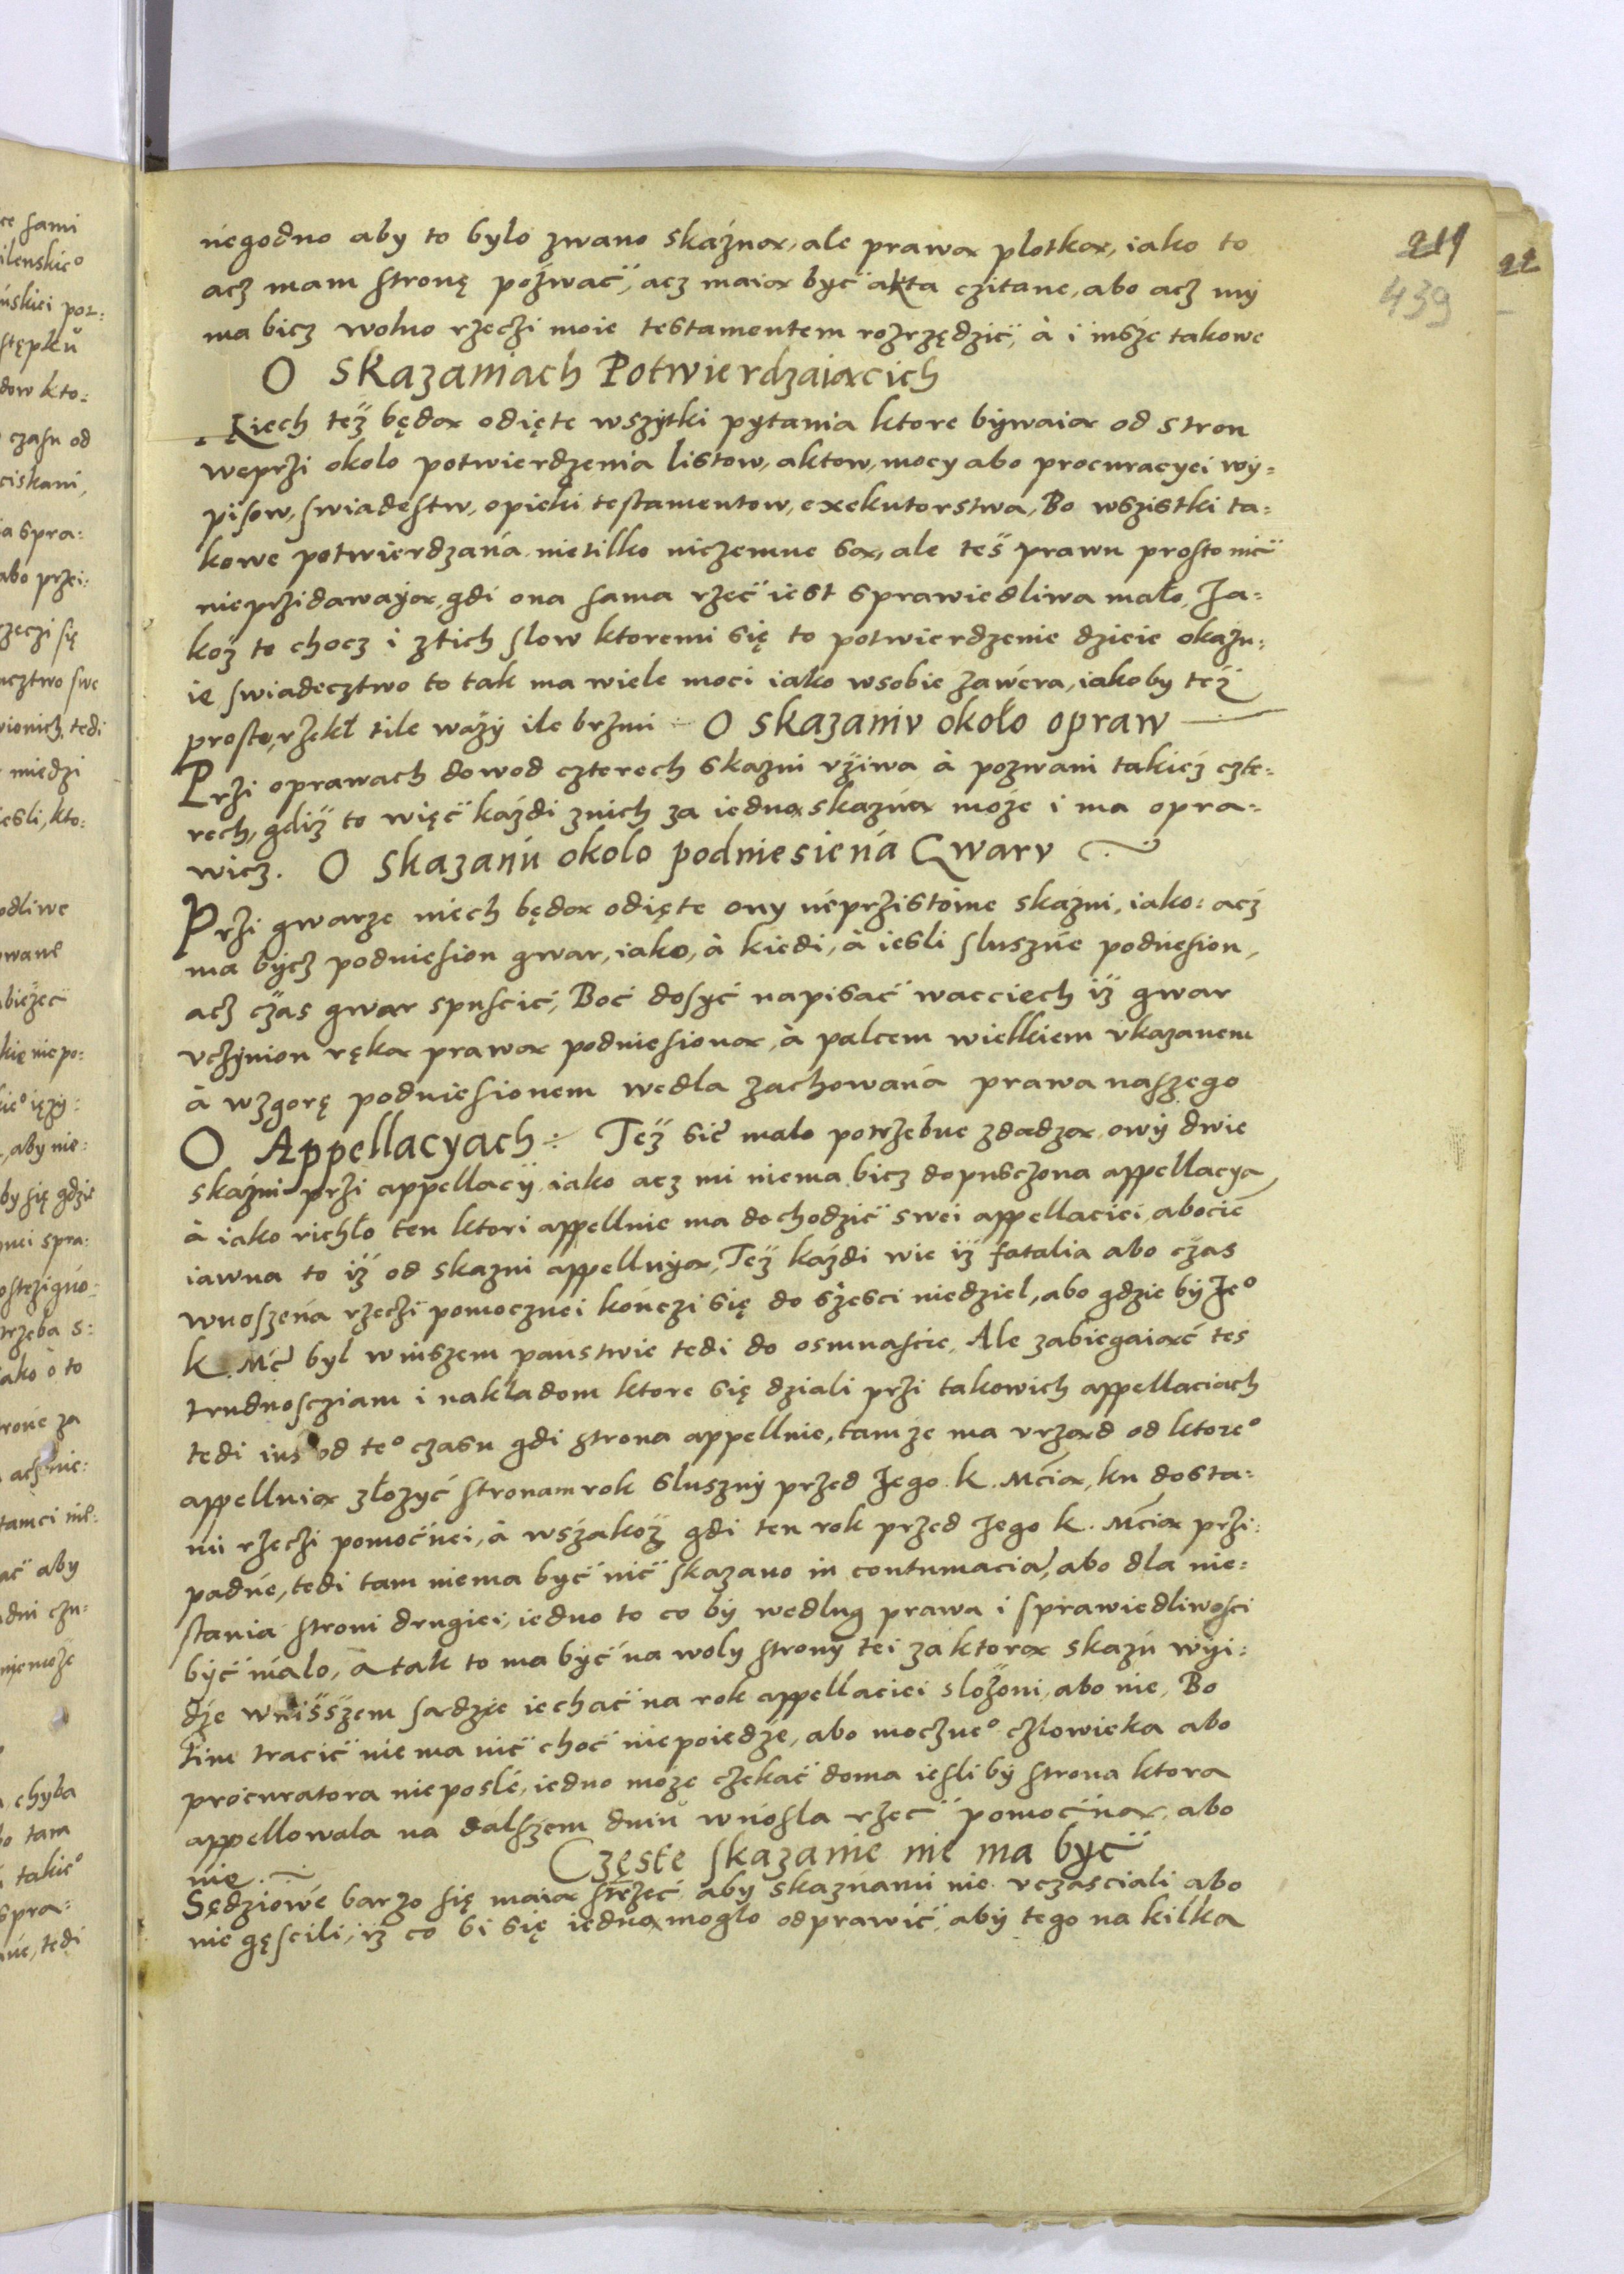 219
439
22
négodno aby to bylo zwano skaźną, ale prawą plotką, iako to
acz mam stronę poźwać, acz maią być akta czitane, abo acz my
ma bicz wolno rzeczi moie testamentem rozrzędzić, à i insze takowe
O Skazaniach Potwierdzaiącich
Niech też będą odięte wszytki pytania ktore bywaią od stron
weprzi okolo potwierdzenia listow, aktow, mocy abo procuracyei wy=
pisow, swiadestw, opieki testamentow, exekutorstwa, Bo wszistki ta=
kowe potwierdzańa nietilko niczemne są, ale teś prawu prosto nić
nieprzidawayą, gdi ona sama rzeć iest sprawiedliwa mało, Ja=
koż to chocz i ztich slow ktoremi się to potwierdzenie dzieie okazu=
ie swiadecztwo to tak ma wiele moci iako wsobie zawera, iakoby też
prosto rzekł tile waży ile brzmi O skazaniv około opraw
Przi oprawach dowod czterech skazni vżiwa à pozwani takież czte=
rech, gdiż to więć każdi znich za iedną skaźńą może i ma opra=
wicz. O Skazańu okolo podniesieńa Gwarv
Przi gwarze niech będą odięte ony néprzistoine skaźni, iako: acż
ma bycz podniesion gwar, iako, à kiedi, à iesli slusznie podnesion,
acz czas gwar spuscić, Boć dosyć napisać wacciech iż gwar
vczynion ręką prawą podniesioną, à palcem wielkiem vkazanem
à wzgorę podniesionem wedla zachowańa prawa naszego
O Appellacyach Też sie mało potrzebne zdadzą owy dwie
skaźni przi appellacÿ iako acz mi niema bicz dopusczona appellacya,
à iako richło ten ktori appelluie ma dochodzić swei appellaciei, abocie
iawna to iż od skazni appelluyą, Też każdi wie iż fatalia abo czas
wnoszeńa rzeczi pomocznei kończi się do sześci niedziel, abo gdzie by Jeº
K. Mć byl winszem państwie tedi do osmnaście, Ale zabiegaiąć teś
trudnoscziam i nakładom ktore się dziali przi takowich appellaciach
tedi iuś od teº czasu gdi strona appelluie, tamże ma vrząd od ktoreº
appelluią złożyć stronam rok sluszny przed Jego K. Mćią, ku dosta=
niu rzeczi pomoćnei, à wszakoż gdi ten rok przed Jego K. Mćią przi=
padńe, tedi tam niema być nić skazano in contumacia, abo dla nie=
stania stroni drugiei, iedno to co by wedlug prawa i sprawiedliwości
być miało, à tak to ma być na woly strony tei za ktorą skaźń wyi=
dże wniższem sądzie iechać na rok appellaciei slożoni, abo nie, Bo
tim tracić nie ma nić choć niepoiedże, abo moczneº człowieka abo
procuratora nieposlé, iedno może czekać doma iesli by strona ktora
appellowala na dalszem dniu wnosla rzeć pomoćną abo
nie. Częste skazanie nie ma być
Sędziowé barzo się maią strzeżeć aby skaznami nie vczasciali abo
nie gęscili, iż co bi się iedną moglo odprawić, aby tego na kilka